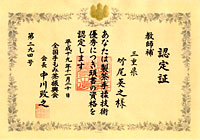 認定証
教師補
三重県
竹尾英之様
あなたは製茶手揉技術
優秀につき頭書の資格を
認定します
平成十九年二月二十日
全国手もみ茶振興会
会長 中川致之
第二九四号